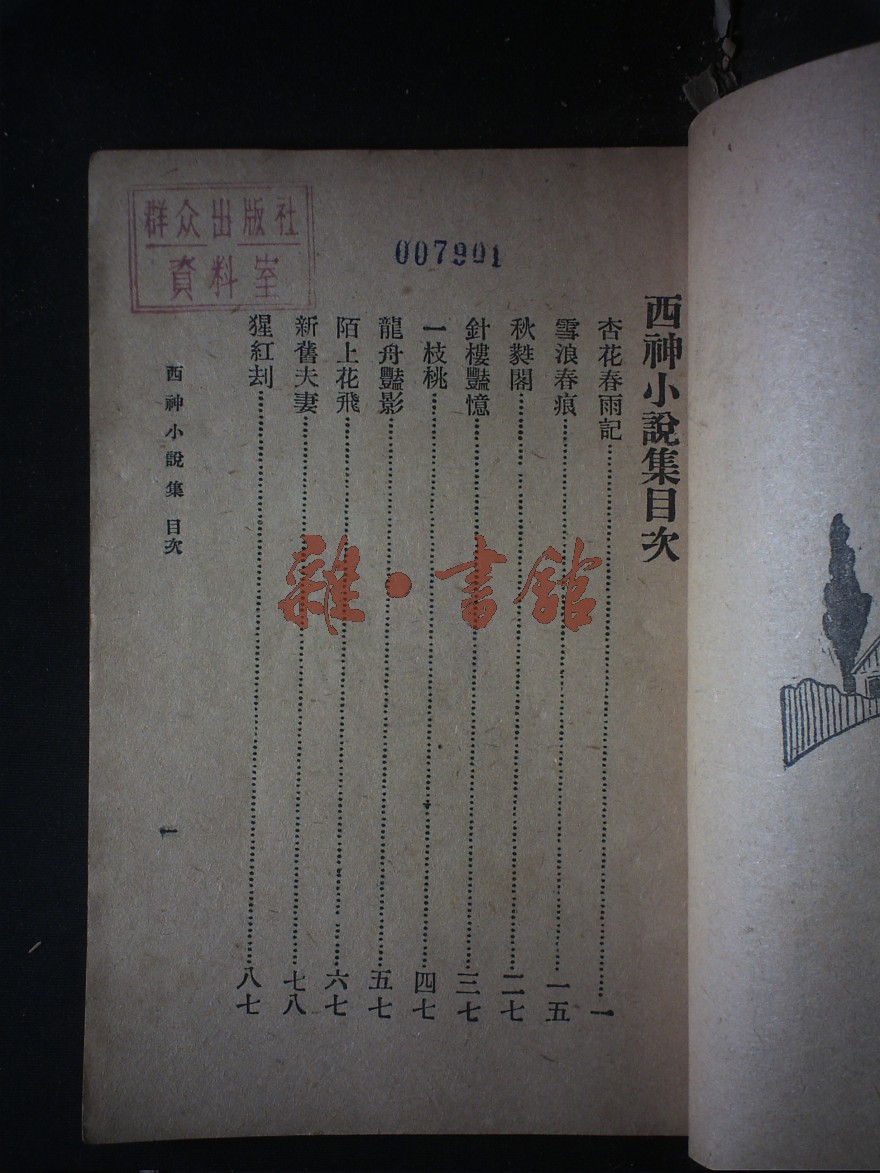 西神小說集目次
杏花春雨記……一
雪浪春痕……一五
秋蕤閣……二七
針樓豔憶……三七
一枝桃……四七
龍舟豔影……五七
陌上花飛……六七
新舊夫妻……七八
猩紅刦……八七
西神小說集 目次
一
群众出版社
資料室
007901
雜·書館